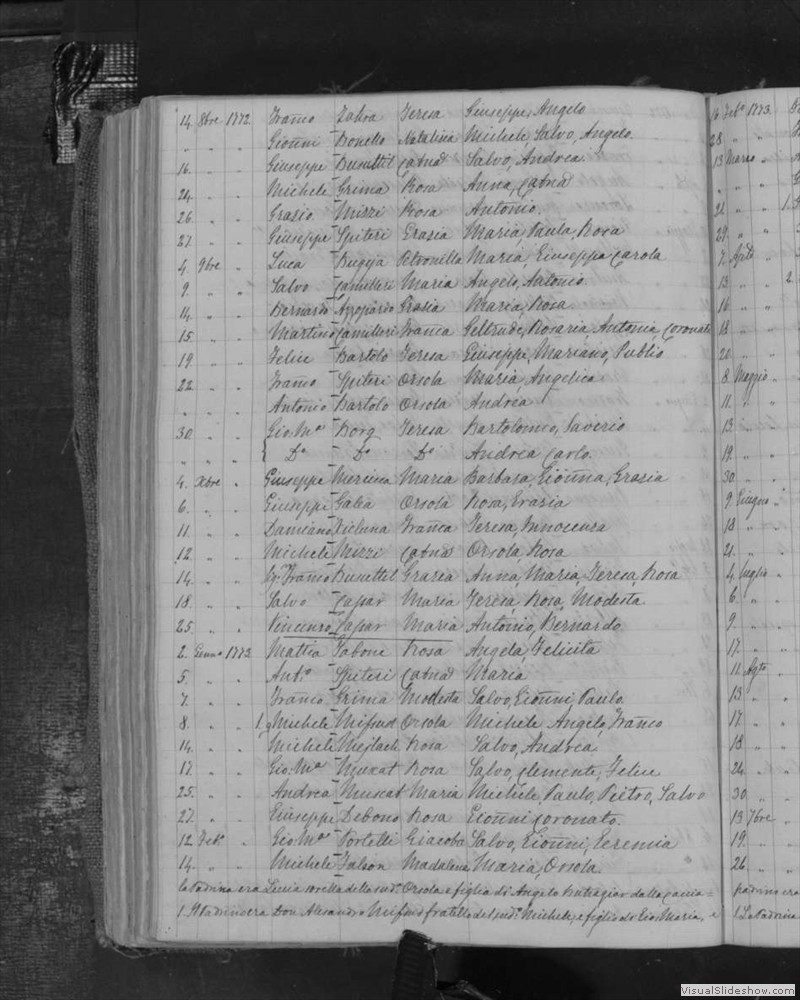 14. 8bre 1772. Franco Zahra Teresa Giuseppe, Angelo
„ „ „ Gioñni Bonello Natalina Michele, Salvo, Angelo
16. „ „ Giuseppe Busuttil Catnã Salvo, Andrea
24. „ „ Michele Grima Rosa Anna, Catnã
26. „ „ Grazio Mizzi Rosa Antonio.
27. „ „ Giuseppe Spiteri Grazia Maria, Paula, Rosa
4. 9bre „ Luca Bugeja Petronilla Maria, Giuseppa Carola
9. „ „ Salvo Camilleri Maria Angelo, Antonio
14. „ „ Bernardo Azzopardo Grazia Maria, Rosa
15. „ „ Martino Camilleri Franca Geltrude, Rosaria, Antonia, Coronata
19. „ „ Felice Bartolo Teresa Giuseppe, Mariano, Publio
22. „ „ Franco Spiteri Orsola Maria, Angelica
„ „ „ Antonio Bartolo Orsola Andrea
30. „ „ Gio: Mª Borg Teresa Bartolomeo, Saverio
„ „ „ { Dº Dº Dº Andrea Carlo.
4. Xbre „ Giuseppe Mercieca Maria Barbara, Gioñna, Grazia
6. „ „ Giuseppe Galea Orsola Rosa, Grazia
11. „ „ Damiano Xicluna Franca Teresa, Innocenza
12. „ „ Michele Mizzi Catnã Orsola, Rosa
14. „ „ Franco Busuttil Grazia Anna, Maria, Teresa, Rosa
18. „ „ Salvo Casar Maria Teresa, Rosa, Modesta
25. „ „ Vincenzo Casar Maria Antonio, Bernardo.
2. Gennº 1773. Mattia Tabone Rosa Angela, Felicita
5. „ „ Antº Spiteri Catnã Maria
7. „ „ Franco Grima Modesta Salvo, Gioñni, Paulo
8. „ „ 1. Michele Mifsud Orsola Michele Angelo, Franco
14. „ „ Michele Mejlach Rosa Salvo, Andrea
17. „ „ Gio: Mª Muxat Rosa Salvo, Clemente, Felice
25. „ „ Andrea Muscat Maria Michele, Paulo, Pietro, Salvo
27. „ „ Giuseppe Debono Rosa Gioñni Coronato.
12. Febº „ Gio: Mª Portelli Giacoba Salvo, Gioñni, Geremia
14. „ „ Michele Falson Madalena Maria, Orsola
la Padrina era Lucia sorella della sudª Orsola e figlia di Angelo Buttigiar dalla
1. Il Padrino era Don Alesandro Mifsud fratello del sudº Michele, e figlio di Gio: Maria, e
16 Febº 1773.
28 „ „
13 Marzo „
„ „ „
21. „ „ 1.
29. „ „
7. Aple „
13 „ „ 2.
16 „ „
18 „ „
20. „ „
8. Maggio „
11. „ „
13. „ „
19. „ „
30. „ „
9. Giugno „
18. „ „
21. „ „
4. Luglio „
6. „ „
9. „ „
17. „ „
11. Agto „
13. „ „
17. „ „
18 „ „
24. „ „
30. „ „
13 7bre „
19. „ „
26 „ „
padrino era
1. La Padrina
VisualSlideshow.com